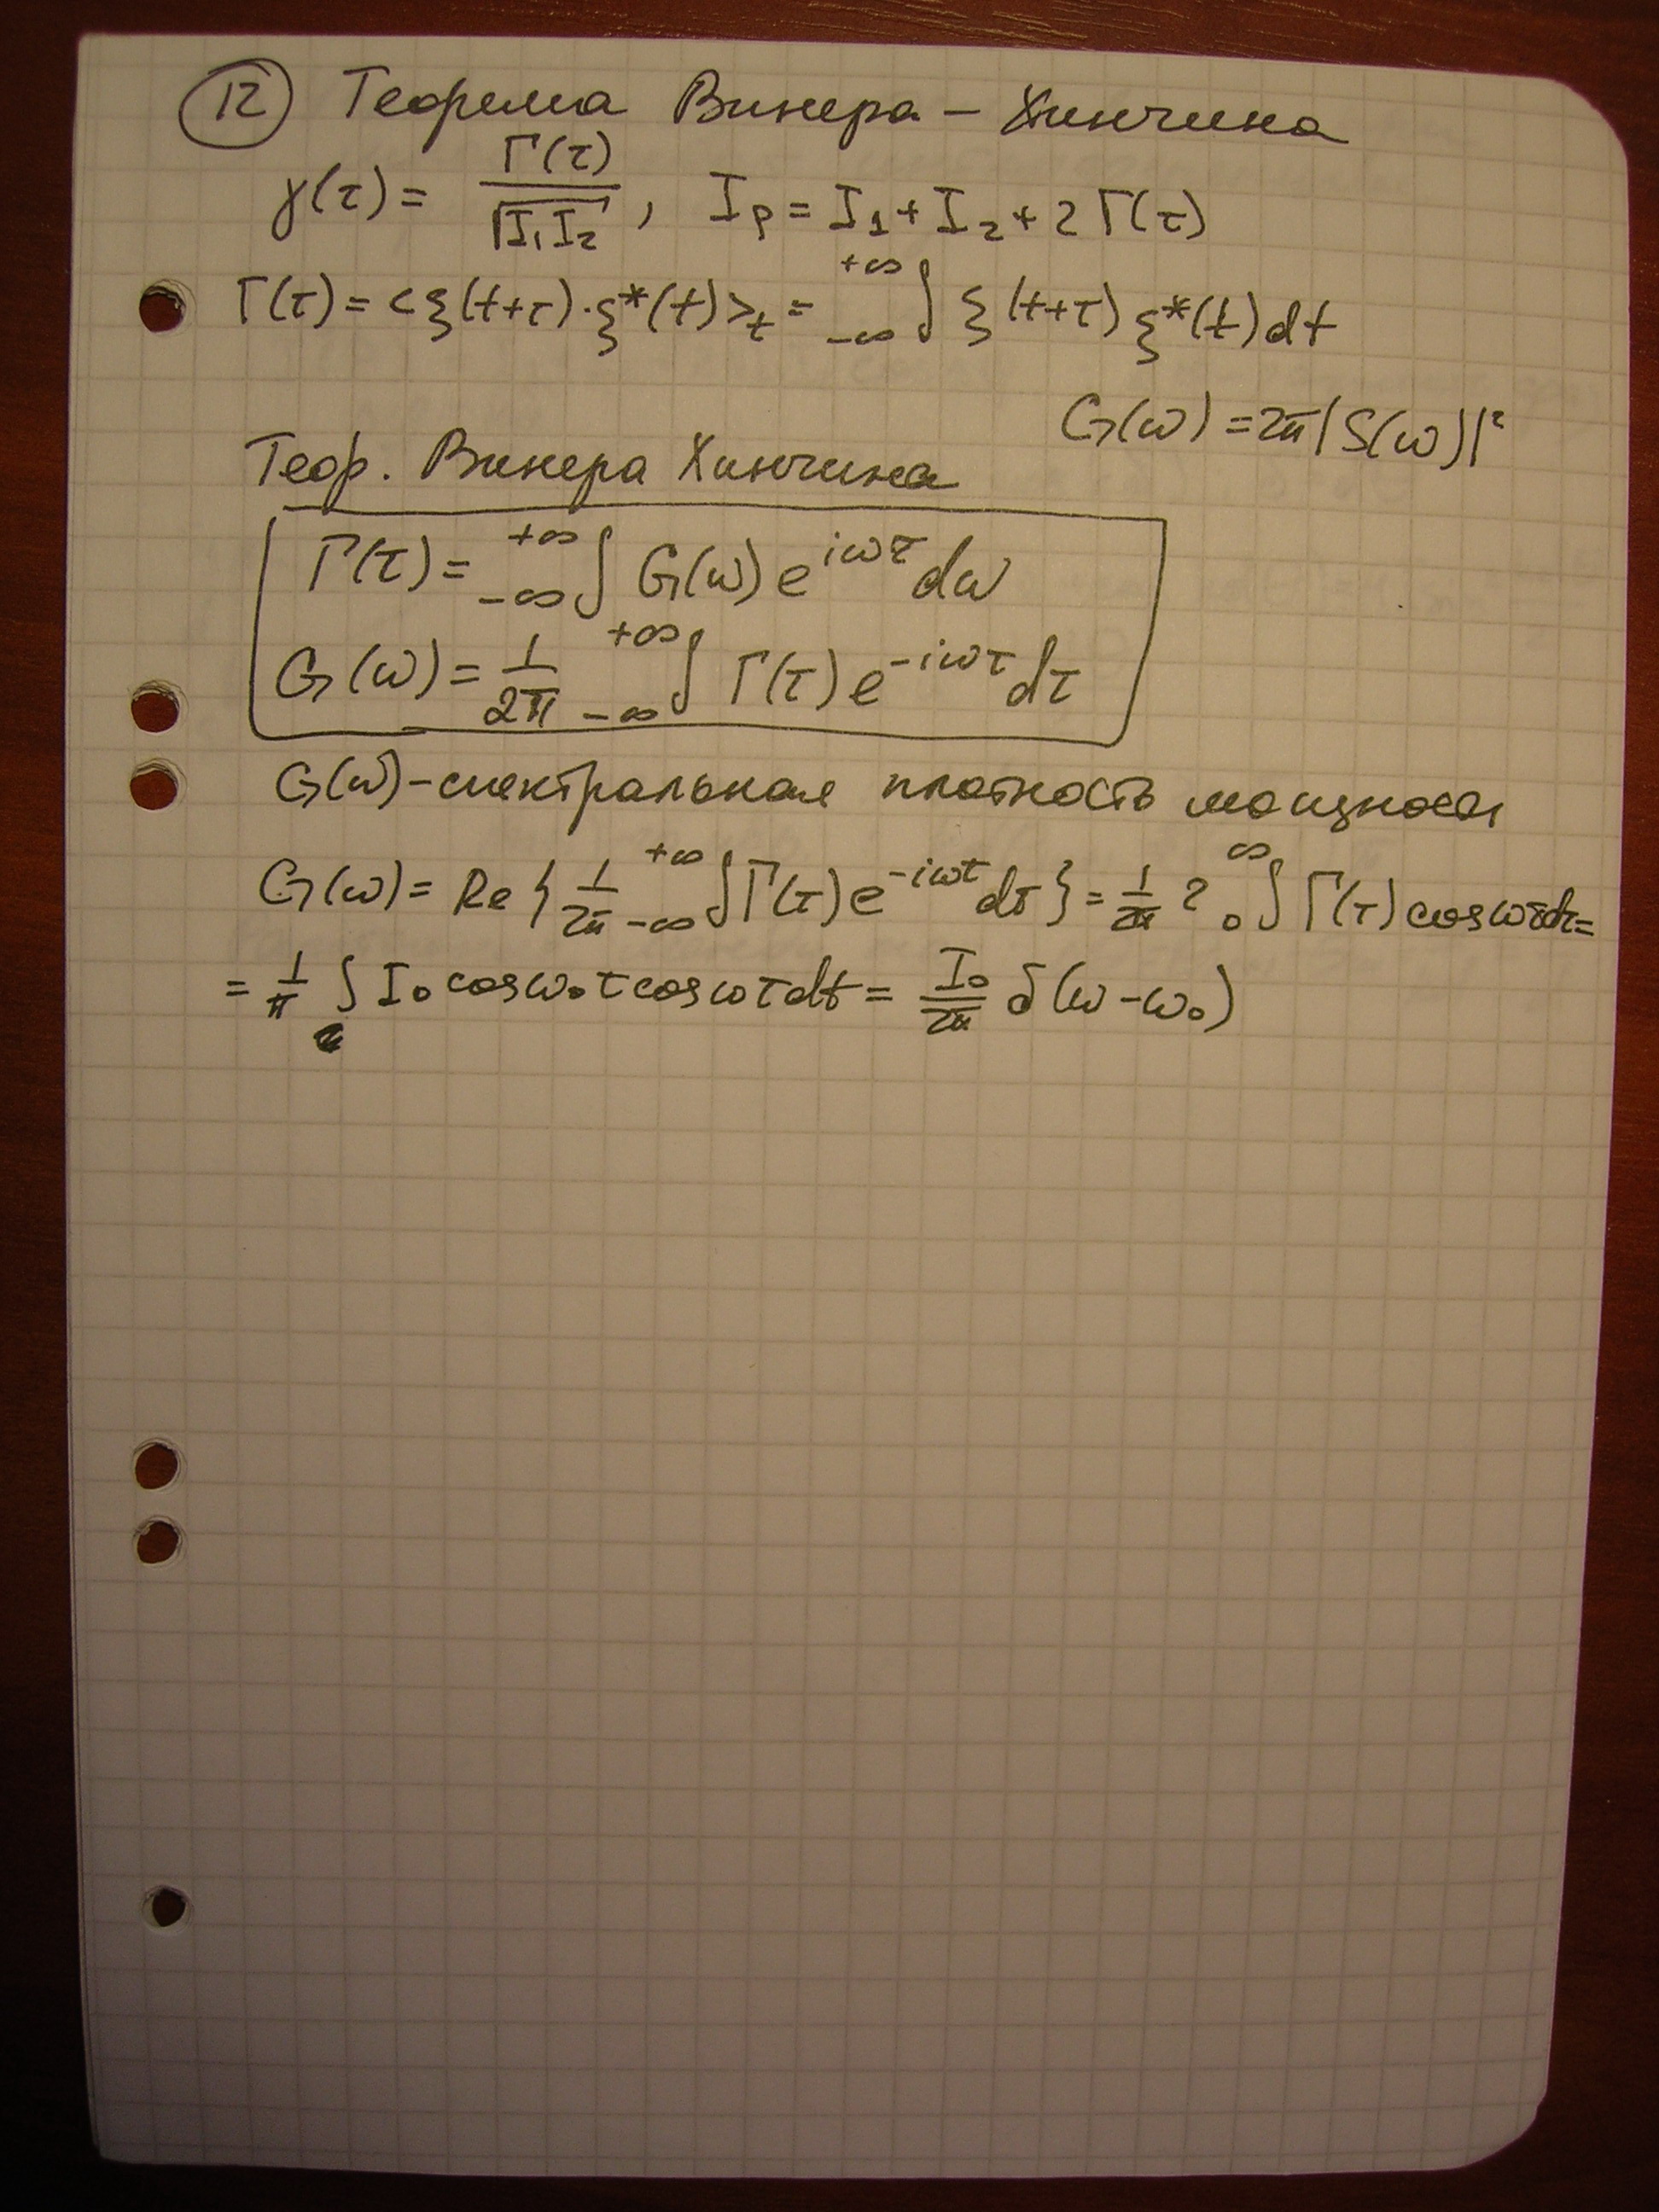 12 Теорема Винера – Хинчина
γ(τ) = Γ(τ) / √(I₁ I₂) , I_P = I₁ + I₂ + 2 Γ(τ)
Γ(τ) = <ξ(t+τ)·ξ*(t)>_t = ₋∞^{+∞}∫ ξ(t+τ) ξ*(t) dt
G(ω) = 2π |S(ω)|²
Теор. Винера Хинчина
Γ(τ) = ₋∞^{+∞}∫ G(ω) e^{iωτ} dω
G(ω) = 1/2π ₋∞^{+∞}∫ Γ(τ) e^{-iωτ} dτ
G(ω) - спектральная плотность мощности
G(ω) = Re { 1/2π ₋∞^{+∞}∫ Γ(τ) e^{-iωτ} dτ } = 1/2π 2 ₀^{∞}∫ Γ(τ) cos ωτ dτ =
= 1/π ∫ I₀ cos ω₀τ cos ωτ dτ = I₀/2π δ(ω - ω₀)